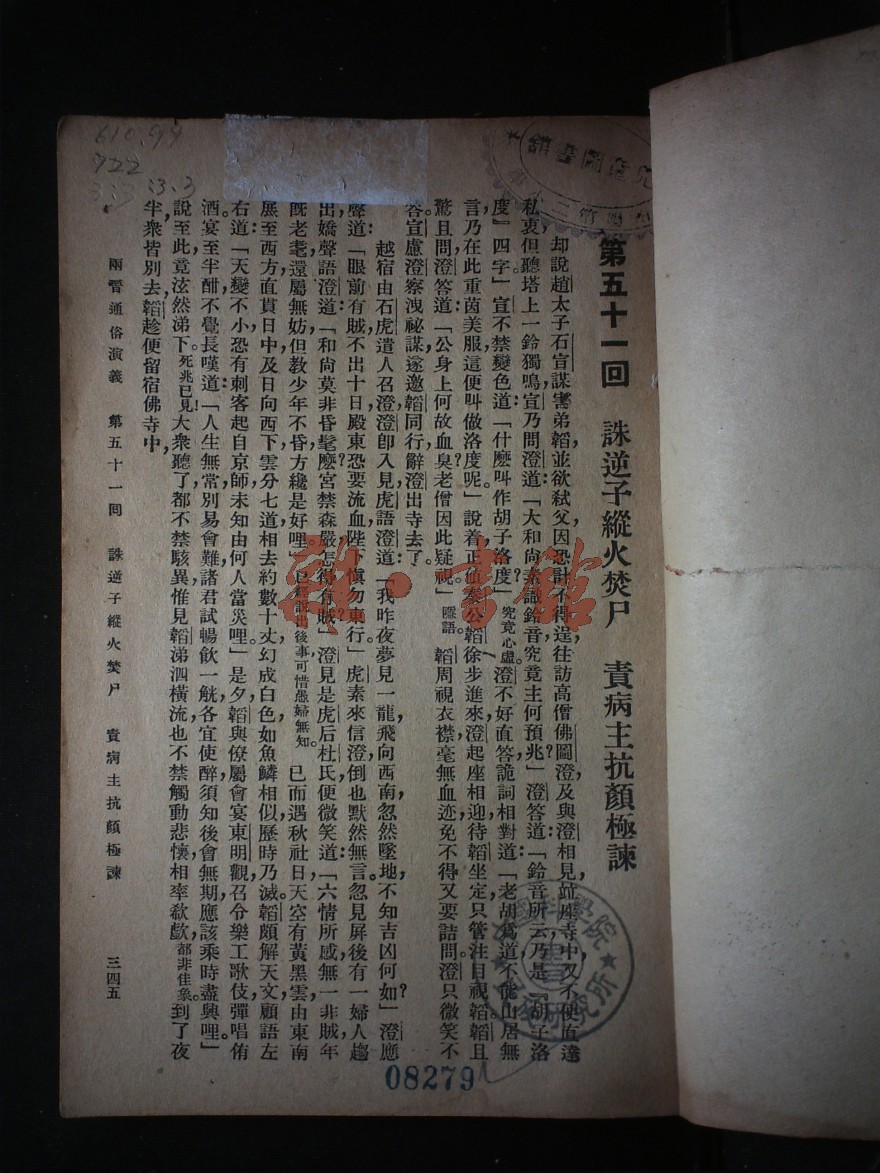 第五十一回　誅逆子縱火焚尸　責病主抗顏極諫
却說趙太子石宣謀害弟韜並欲弑父因恐計不得逞往訪高僧佛圖澄及與澄相見趾座寺中又不便直達
私衷但聽塔上一鈴獨鳴宣乃問澄道：「大和尚素識鈴音究竟主何預兆？」澄答道：「鈴音所云乃是『胡子洛
度』四字。」宣不禁變色道：「什麽叫作胡子洛度？」究竟心虛。澄不好直答詭詞相對道：「老胡爲道不能山居無
言，乃在此重茵美服這便叫做洛度呢。」說着正值秦公韜徐步進來，澄起座相迎待韜坐定只管注目視韜韜且
驚且問澄答道：「公身上何故血臭？老僧因此疑視。」隱語。韜周視衣襟毫無血迹免不得又要詰問。澄只微笑不
答。宣慮澄察洩祕謀遂邀韜同行，辭澄出寺去了。
越宿由石虎遣人召澄澄卽入見虎語澄道：「我昨夜夢見一龍，飛向西南，忽然墜地，不知吉凶何如？」澄應
聲道：「眼前有賊不出十日殿東恐要流血陛下愼勿東行。」虎素來信澄，倒也默然無言。忽見屏後有一婦人趨
出，嬌聲語澄道：「和尚莫非昏髦麽？宮禁森嚴，怎得有賊？」澄見是虎后杜氏便微笑道：「六情所感無一非賊，年
旣老耄，還屬無妨，但教少年不昏，方纔是好哩。」已經說出後事，可惜愚婦無知。已而遇秋社日，天空有黃黑雲由東南
展至西方直貫日中及日向西下，雲分七道，相去約數十丈，幻成白色，如魚鱗相似，歷時乃滅。韜頗解天文，顧語左
右道：「天變不小，恐有刺客起自京師，未知由何人當災哩。」是夕韜與僚屬會宴東明觀，召令樂工歌伎彈唱侑
酒。宴至半酣，不覺長嘆道：「人生無常，別易會難，諸君試暢飲一觥，各宜使醉，須知後會無期，應該乘時盡興哩。」
說至此，竟泫然涕下。死兆已見！大衆聽了，都不禁駭異，惟見韜涕泗橫流，也不禁觸動悲懷，相率欷歔。都非佳象。到了夜
半，衆皆別去，韜趁便留宿佛寺中，
兩晉通俗演義　第五十一回　誅逆子縱火焚尸　責病主抗顏極諫　三四五
610.94
922
3:3
:3.3
08279
雜·書館